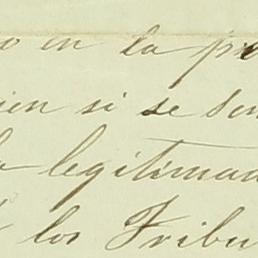 o en la p
ien si se
legitima
los Tribu